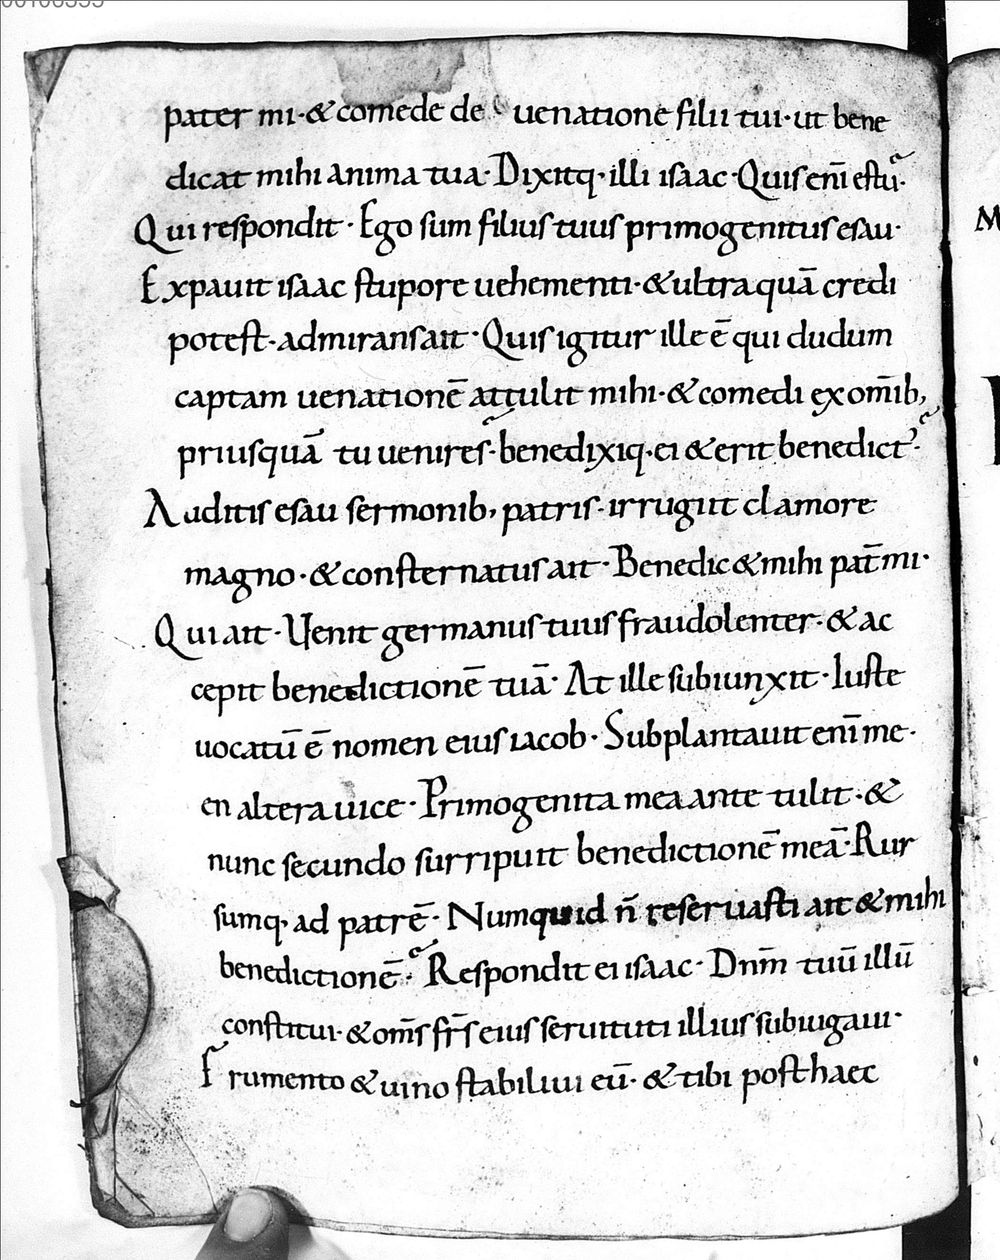 00100555
pater mi·&comede de uenatione filii tui·ut bene
dicat mihi anima tua· Dixitq· illi isaac· Quis enī es tu·
Qui respondit· Ego sum filius tuus primogenitus esau·
Expauit isaac stupore uehementi·&ultra quā credi
potest·admirans ait· Quis igitur ille ē qui dudum
captam uenationē attulit mihi·&comedi ex omīb,
priusquā tu uenires·benedixiq·ei &erit benedict᾿·
Auditis esau sermonib, patris·irrugiit clamore
magno·&consternatus ait· Benedic &mihi pat̄ mi·
Qui ait· Uenit germanus tuus fraudolenter·&ac
cepit benedictionē tuā· At ille subiunxit· Iuste
uocatū ē nomen eius iacob· Subplantauit enī me·
en altera uice· Primogenita mea ante tulit·&
nunc secundo surripuit benedictionē meā· Rur
sumq· ad patrē· Numquid n̄ reseruasti ait &mihi
benedictionē· Respondit ei isaac· Dnm̄ tuū illū
constitui·&oms̄ frs̄ eius seruituti illius subiugaui·
Frumento &uino stabiliui eū·&tibi post haec
M